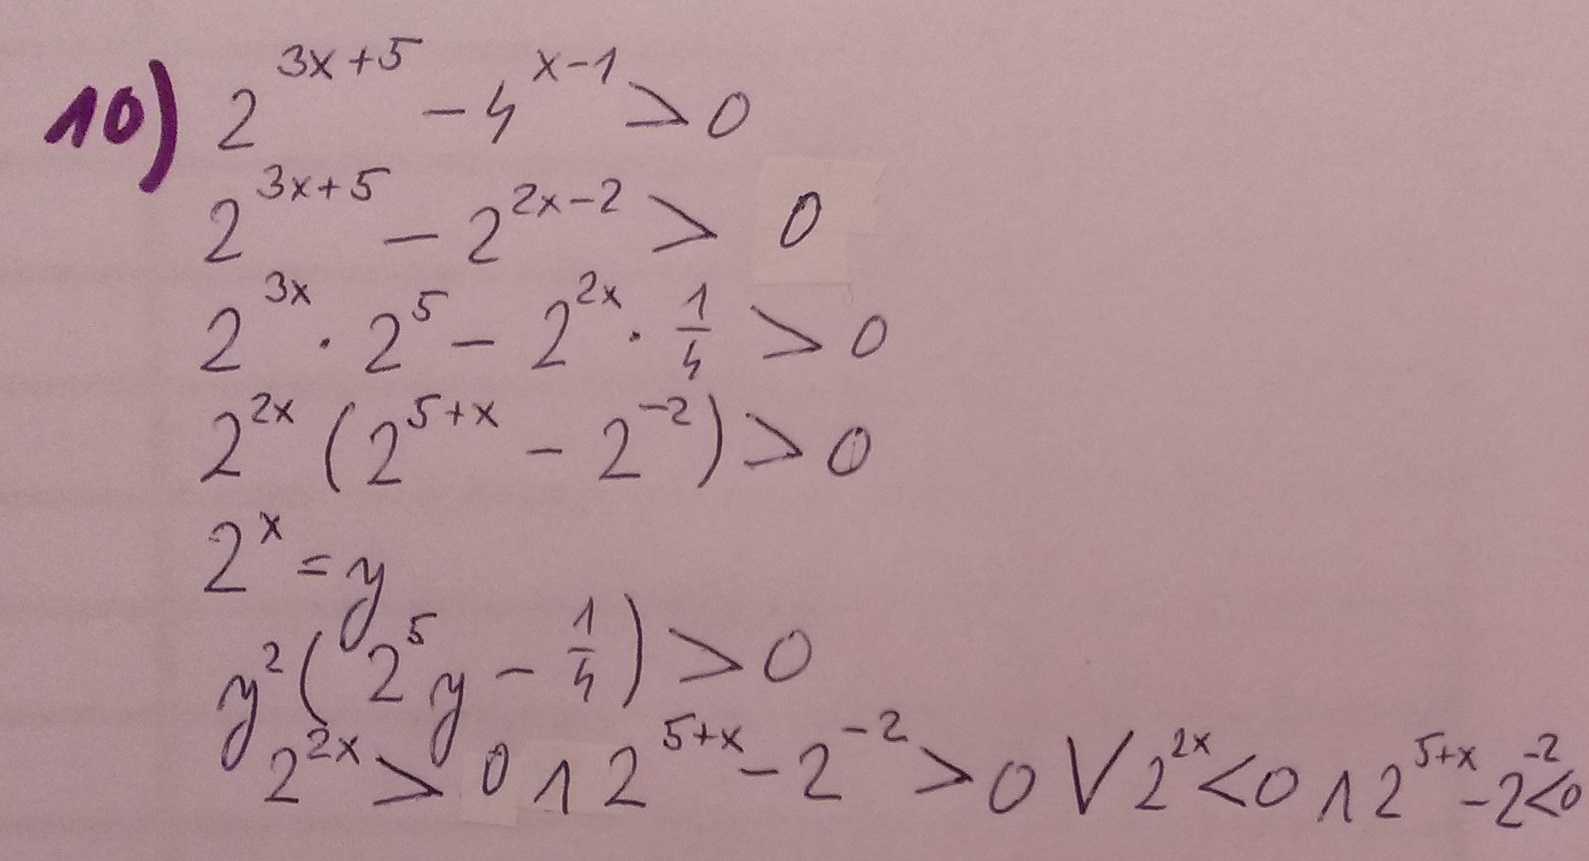 10) 2^{3x+5} - 4^{x-1} > 0
2^{3x+5} - 2^{2x-2} > 0
2^{3x} · 2^5 - 2^{2x} · 1/4 > 0
2^{2x} (2^{5+x} - 2^{-2}) > 0
2^x = y
y^2 (2^5 y - 1/4) > 0
2^{2x} > 0 ∧ 2^{5+x} - 2^{-2} > 0 ∨ 2^{2x} < 0 ∧ 2^{5+x} - 2^{-2} < 0